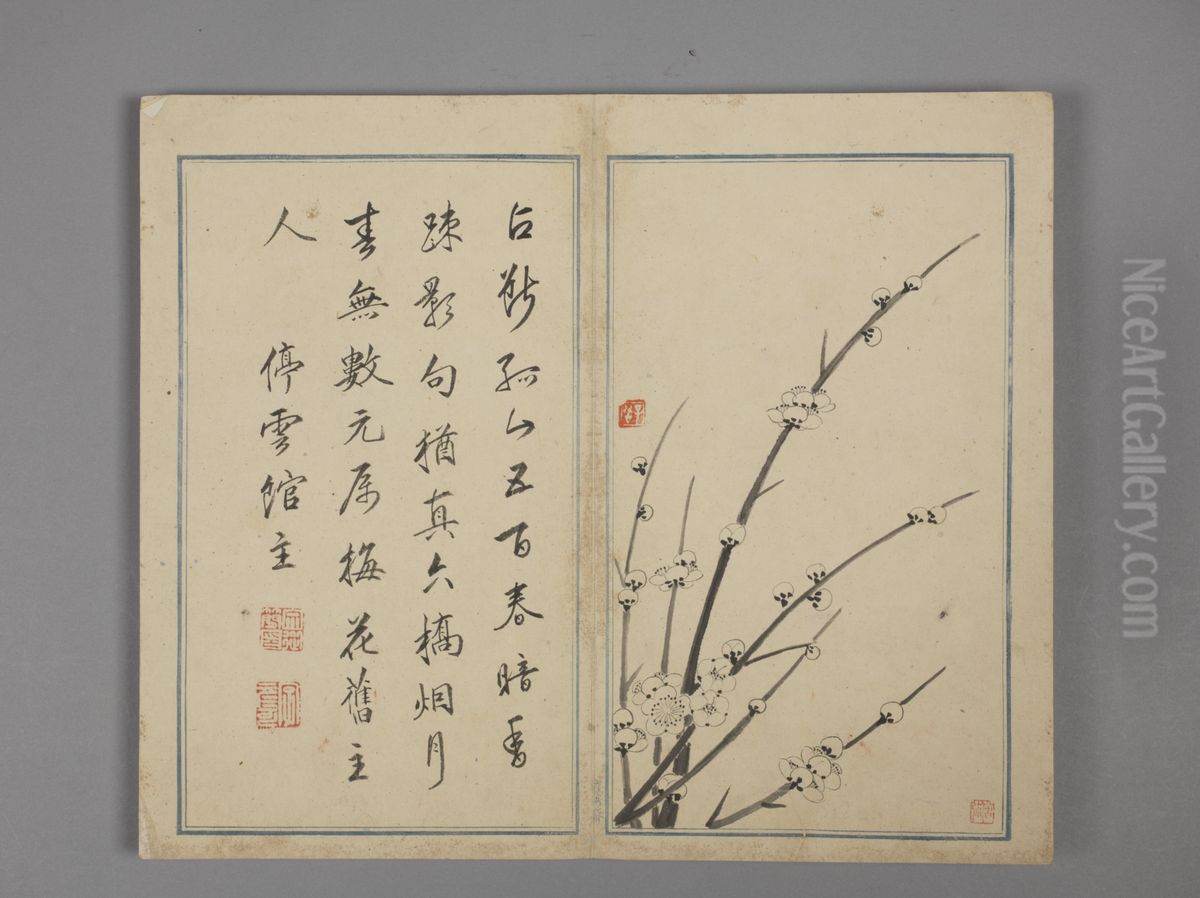 占斷孤山五百春暗香
踈影句猶真六橋烟月
春無數元屬梅花舊主
人 停雲館主
NiceArtGallery.com